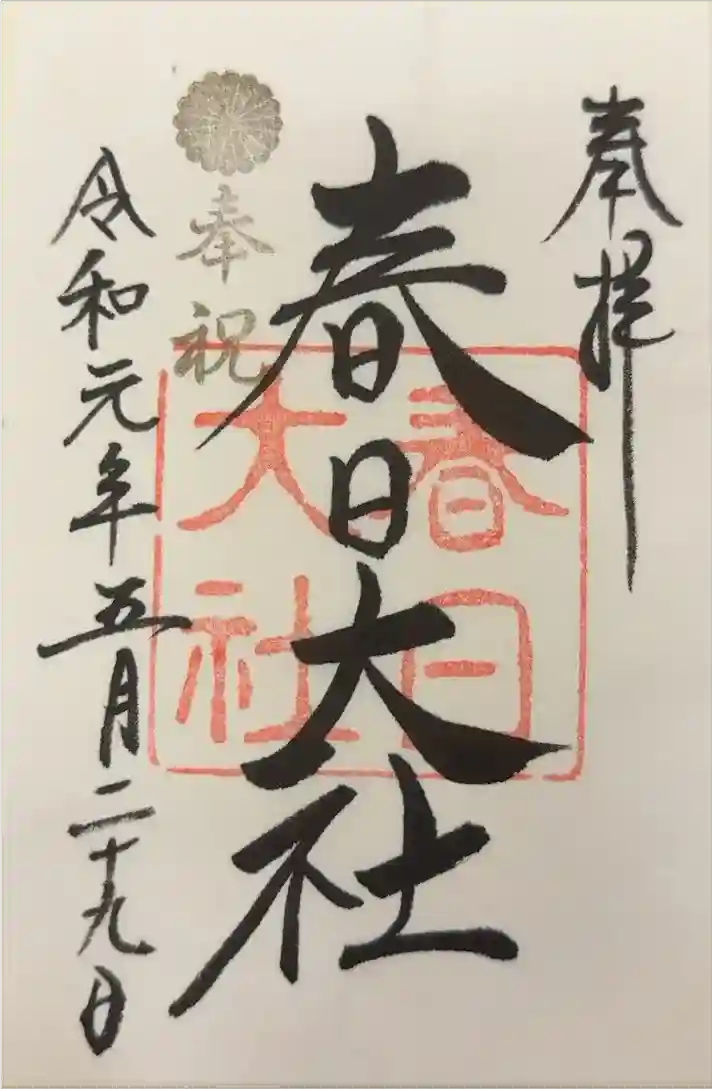 奉拝
春日大社
春日
大社
奉祝
令和元年五月二十九日